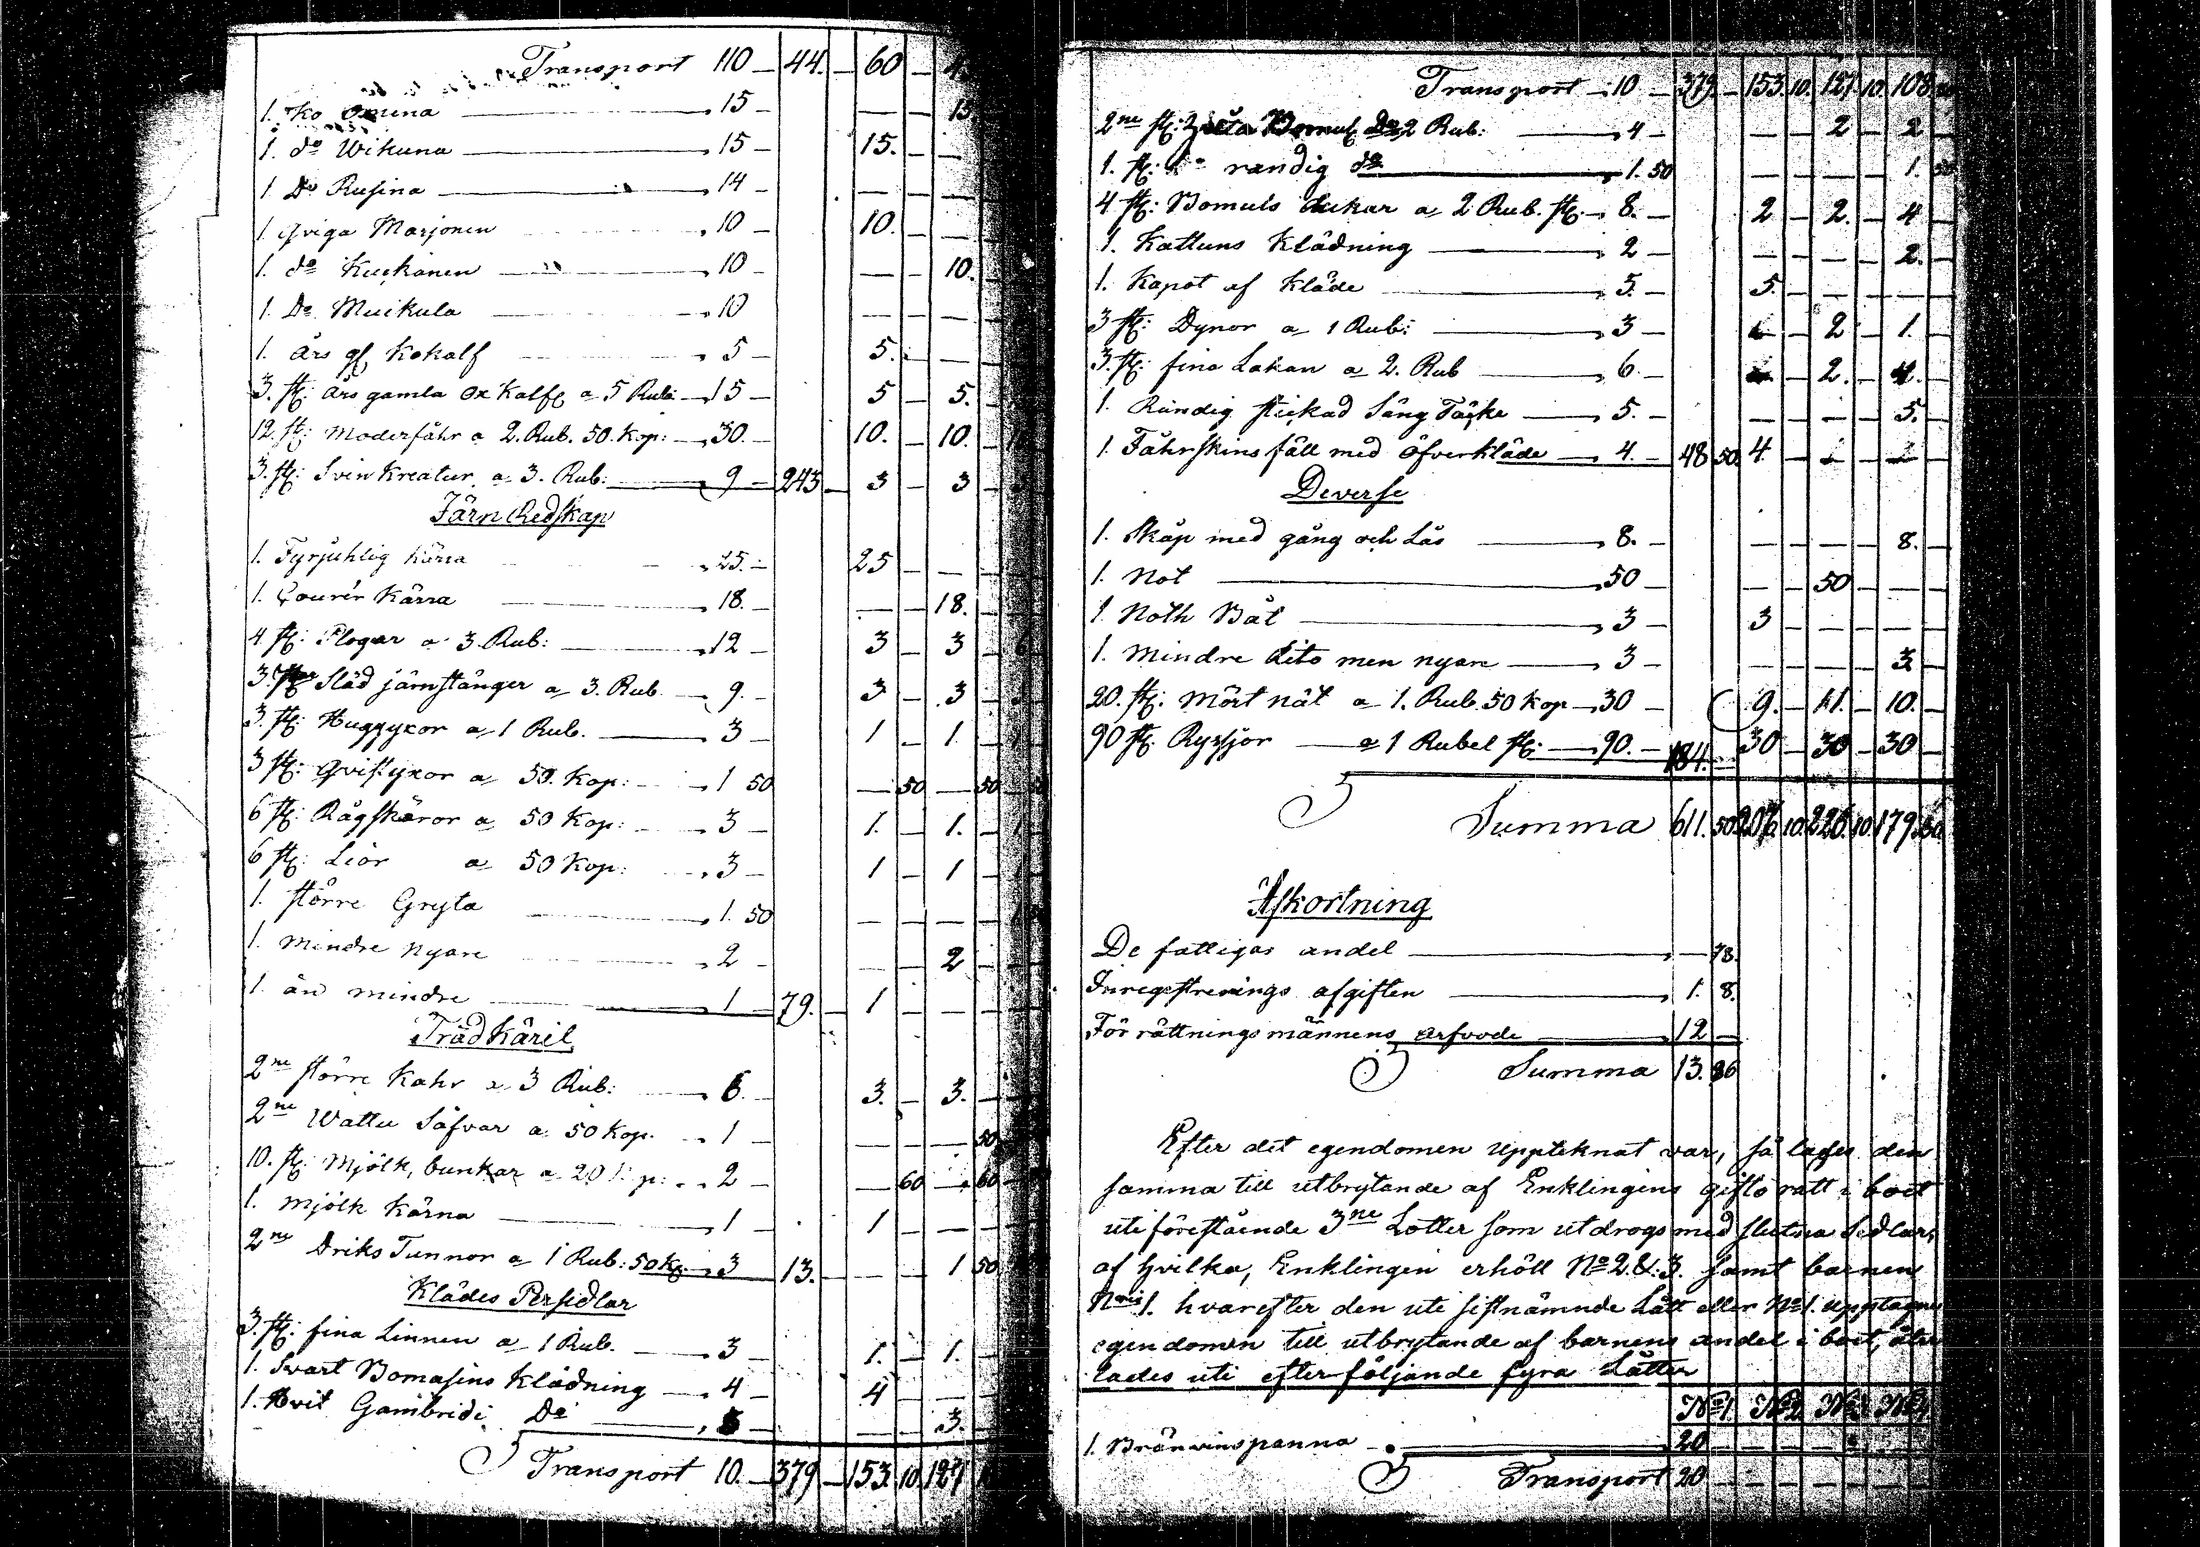 Transport 110 — 44. — 60 — 4
1. Ko Omena — 15 — — — 15
1. do Wikuna — 15 — 15. — —
1 Do Rusina — 14 — — — —
1 qviga Marjonen — 10 — 10. — —
1. do Kuckanen — 10 — — — 10.
1 Do Muikula — 10 — — —
1. års gl Kokalf — 5 — 5. — —
3. st: års gamla ox Kalfv a 5 Rub: — 15 — 5 — 5.
12. st: Moderfåhr a 2. Rub. 50. Kop: — 30. — 10. — 10.
3. st: Svin Kreatur a 3. Rub: — 9 — 243 — 3 — 3
Järn Redskap
1. Fyrjuhlig kärra — 25. — 25 — —
1. Courir Kärra — 18. — — — 18.
4 st: Plogar a 3. Rub: — 12 — 3 — 3 — 6
3. Släd jämstänger a 3. Rub — 9. — 3 — 3
3. st: Huggyxor a 1 Rub. — 3 — 1 — 1.
3 st: qvistyxor a 50. Kop: — 1 50 — 50 — 50
6 st: Rågskäror a 50 Kop: — 3 — 1. — 1.
6 st: Liör a 50 Kop: — 3 — 1 — 1
1. större Gryta — 1. 50 — — —
1. mindre nyare — 2 — — — 2
1. än mindre — 1 79. — 1 — —
Träd Käril
2ne större Kahr a 3 Rub: — 6. — 3. — 3.
2ne Wattu Såfvar a 50 Kop. — 1 — — — — 50
10. st: Mjölk, bunkar a 20 — 2 — — 60 — 60
1. Mjölk Kärna — 1 — 1 — —
2ne Driks Tunnor a 1 Rub: 50 K. — 3 13. — — — 1 50
Klädes Persedlar
3. st: fina Linnen a 1 Rub. — 3 — 1. — 1.
1. Svart Bomasins Klädning — 4 — 4 — —
1. Hvit Gambrids Do — — — 3.
Transport 10. — 379 — 153 10. 127
Transport — 10 — 379. — 153. 10. 127. 10. 108.
2ne st: Bomul 2 Rub: — 4 — — — 2 — 2
1. st: do randig do — 1. 50 — — — 1. 50
4 st: Bomuls dukar a 2 Rub. st: — 8. — 2 — 2. — 4
1. Kattuns Klädning — 2 — — — — 2.
1. Kapot af Kläde — 5. — 5. — — —
3 st: Dynor a 1 Rub: — 3 — — 2 — 1.
3. st: fina Lakan a 2. Rub — 6. — — 2. — 4.
1. Randig stickad Säng Täcke — 5. — — — — 5.
1 Fåhrskins fäll med öfverkläde — 4. — 48 50. 4. — — —
Deverse
1. Skåp med gång och Lås — 8. — — — 8.
1. Not — 50 — — 50 — —
1 Noth Båt — 3 — 3 — — —
1. mindre dito men nyare — 3 — — — — 3
20. st: Mört nät a 1. Rub. 50 Kop — 30 — 9. — 11. — 10.
90 st: Ryssjor — a 1 Rubel st: — 90. — 184. 30 — 30 — 30
Summa 611. 50 207. 10. 226. 10. 179.
Afkortning
De fattigas andel — 78.
Inregistrerings afgiften — 1. 8.
Förrättningsmännens arfvode — 12 —
Summa 13. 86
Efter det egendomen uppteknat var, så lades den
samma till utbrytande af Enklingens giftorätt i boet
uti förestående 3ne Lotter som utdrogs med slutna Sedlar,
af hvilka, Enklingen erhöll No 2. & 3. samt barnen
No 1. hvarefter den uti sistnämnde Lått eller No 1. upptagne
egendomen till utbrytande af barnens andel i boet, åter
lades uti efterföljande fyra Låtter
No 1. No 2. No 3 No 4
1. Bränvinspanna — 20 — — —
Transport 20 — — —